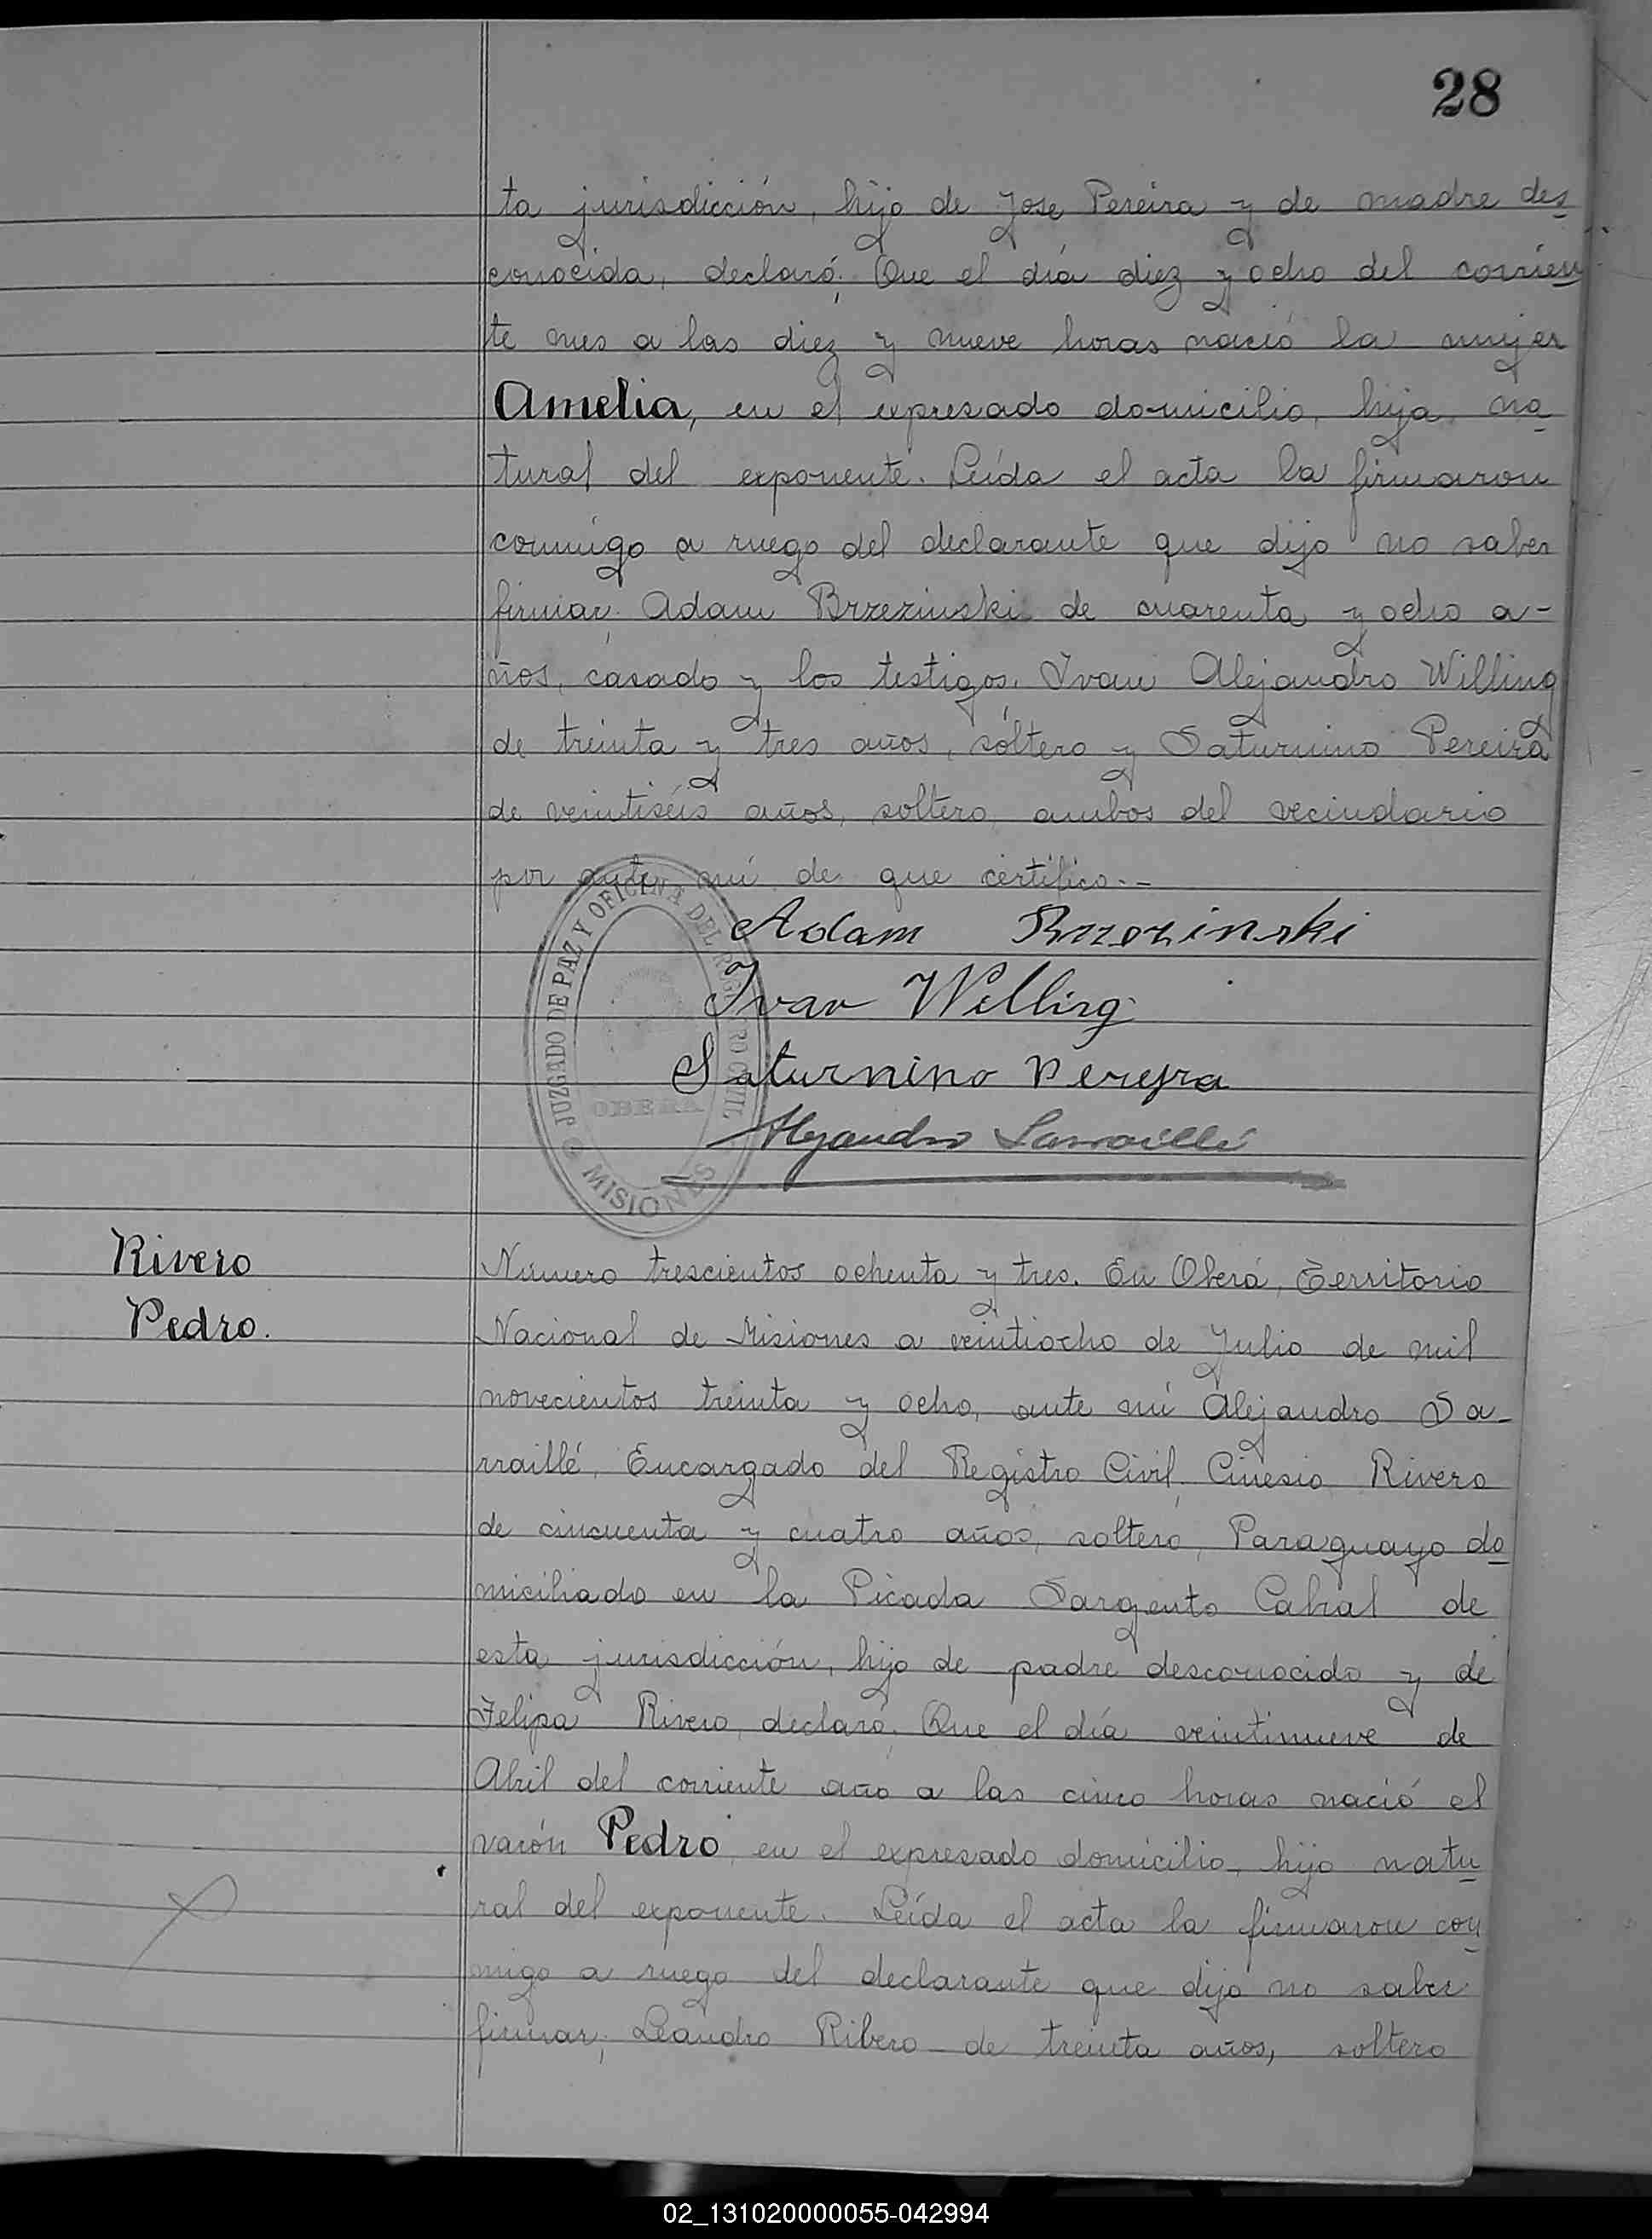 28
ta jurisdicción, hijo de Jose Pereira y de madre des
conocida, declaró; Que el día diez y ocho del corrien
te mes a las diez y nueve horas nació la mujer
Amelia, en el expresado domicilio, hija na
tural del exponente. Leída el acta la firmaron
conmigo a ruego del declarante que dijo no saber
firmar; Adam Brzezinski de cuarenta y ocho a-
ños, casado y los testigos, Ivan Alejandro Willing
de treinta y tres años, soltero y Saturnino Pereira
de veintiséis años, soltero, ambos del vecindario
por ante mí de que certifico.-
JUZGADO DE PAZ Y OFICINA DEL REGISTRO CIVIL
OBERA
MISIONES
Adam Brzezinski
Ivan Willing
Saturnino Pereyra
Alejandro Sarraillé
Rivero
Pedro.
Número trescientos ochenta y tres. En Oberá, Territorio
Nacional de Misiones a veintiocho de Julio de mil
novecientos treinta y ocho, ante mí Alejandro Sa-
rraillé, Encargado del Registro Civil, Cinesio Rivero
de cincuenta y cuatro años, soltero, Paraguayo do
miciliado en la Picada Sargento Cabral de
esta jurisdicción, hijo de padre desconocido y de
Felipa Rivero, declaró; Que el día veintinueve de
Abril del corriente año a las cinco horas nació el
varón Pedro, en el expresado domicilio, hijo natu
ral del exponente. Leída el acta la firmaron con
migo a ruego del declarante que dijo no saber
firmar; Leandro Ribero de treinta años, soltero
02_131020000055-042994